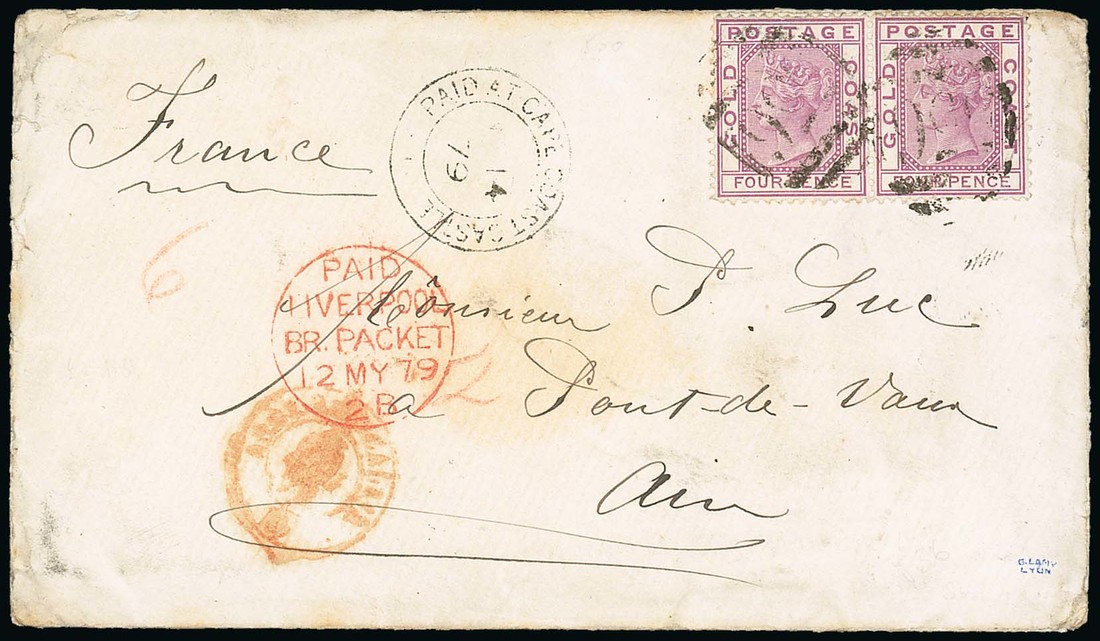 POSTAGE
GOLD COAST
FOUR PENCE
POSTAGE
GOLD
FOUR PENCE
France
PAID AT CAPE COAST CASTLE
14
79
6
PAID
LIVERPOOL
BR. PACKET
12 MY 79
2B
2
Mônsieur P. Luc
a Pont-de-Vaux
Ain
G. LAMY
LYON